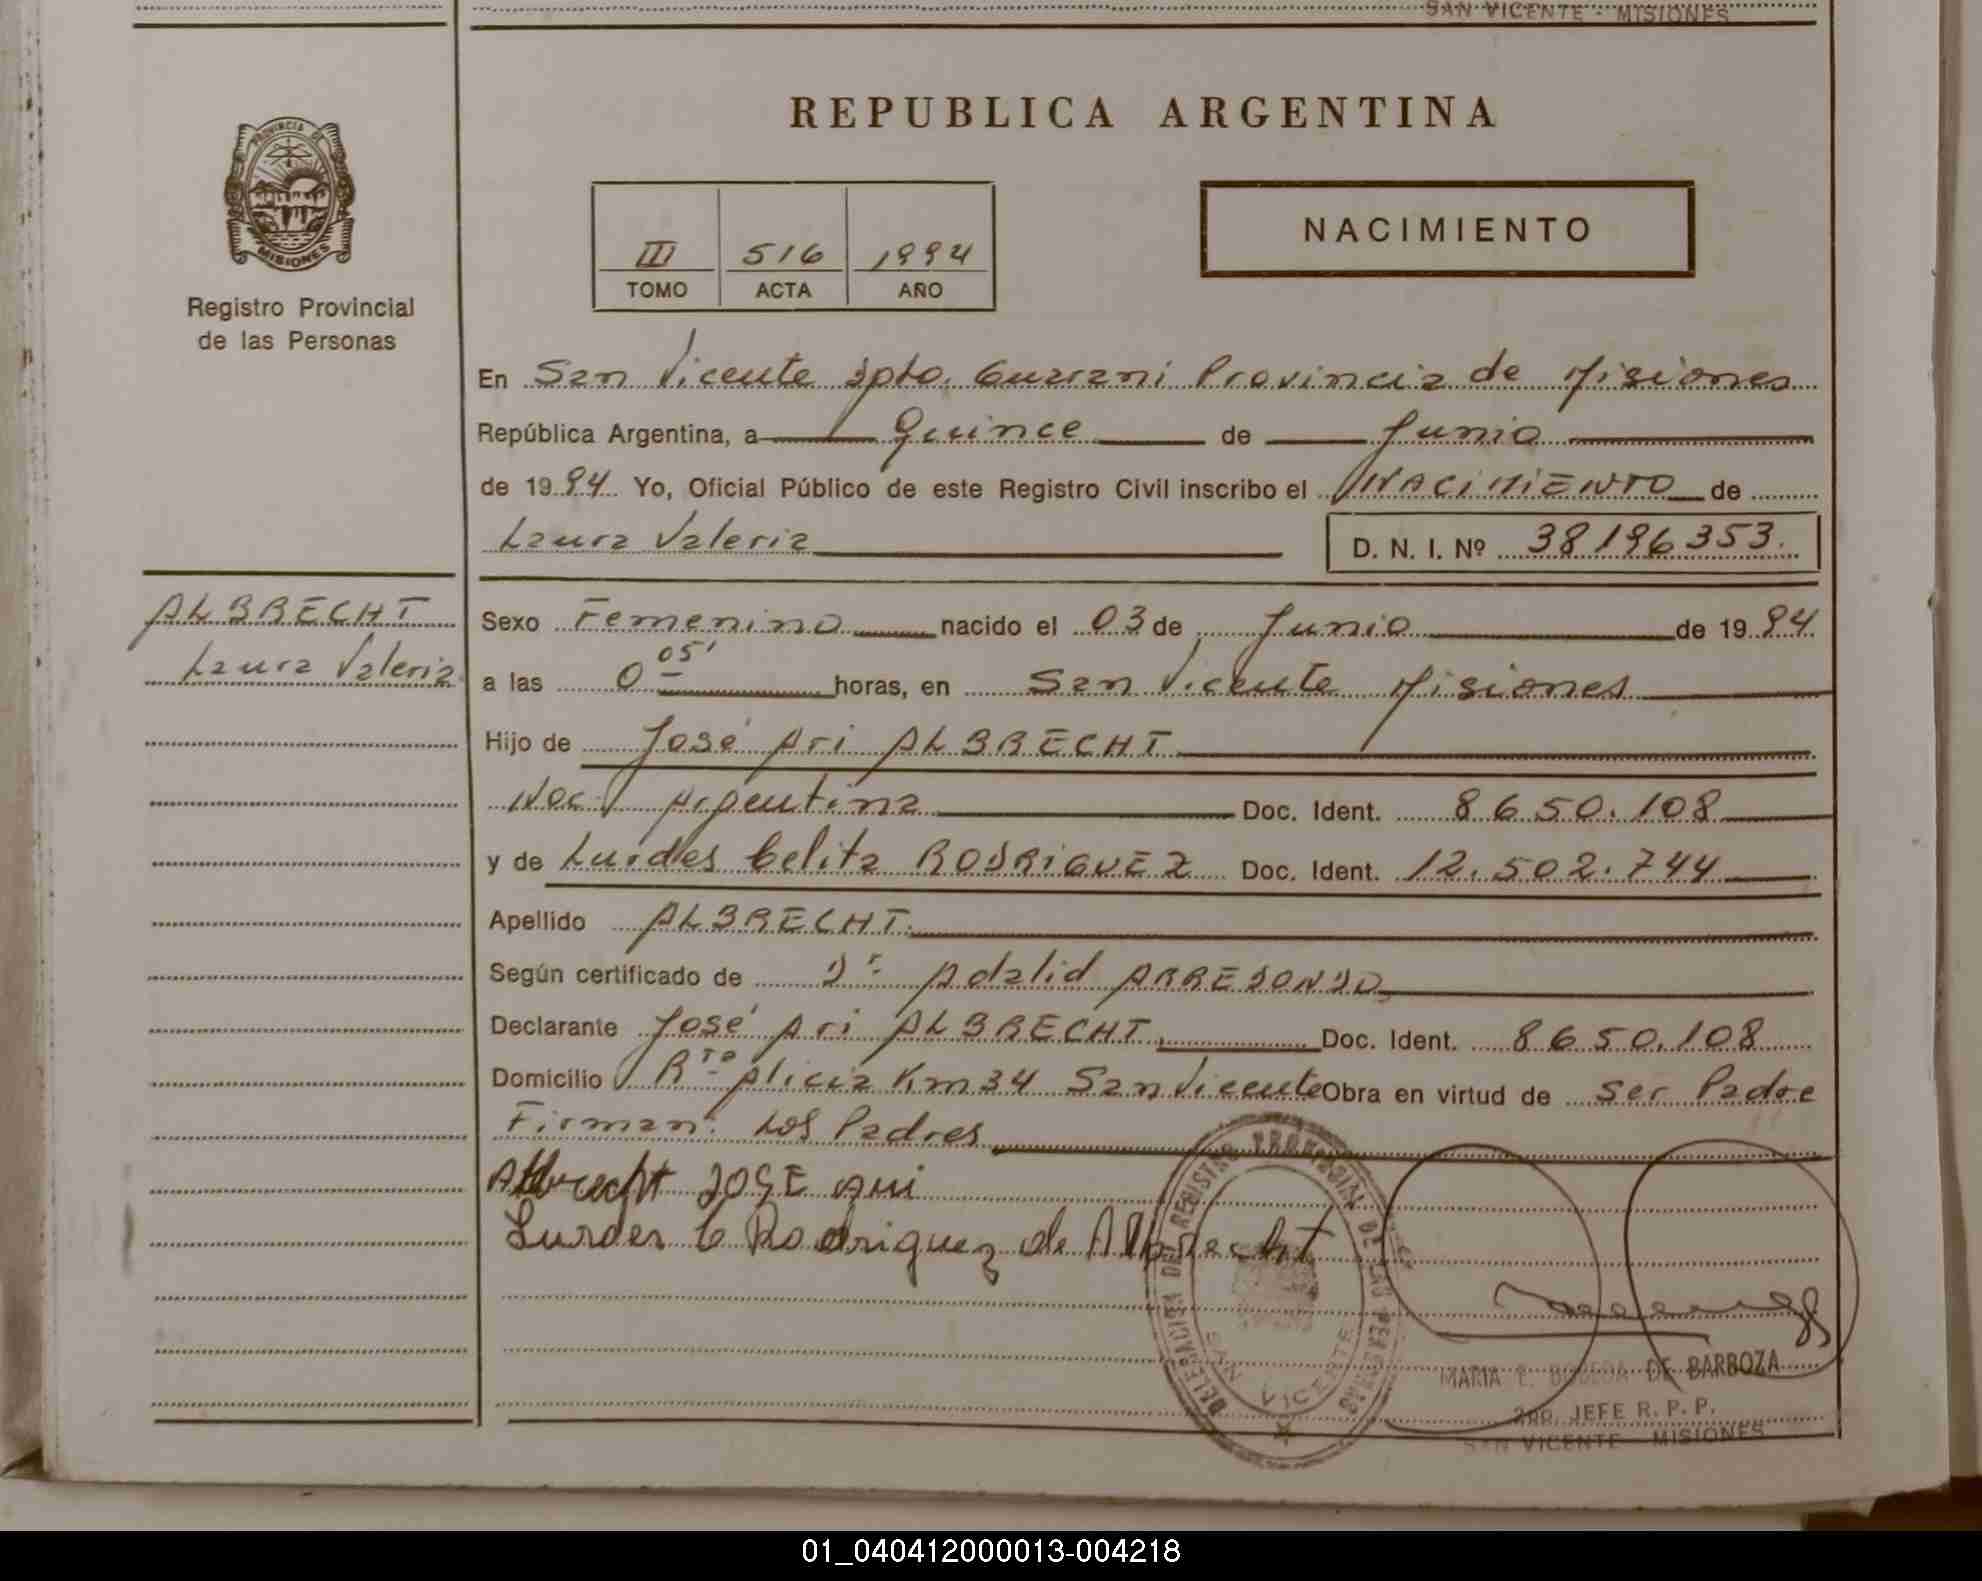 SAN VICENTE - MISIONES
REPUBLICA ARGENTINA
PROVINCIA DE
MISIONES
Registro Provincial
de las Personas
III 516 1994
TOMO ACTA AÑO
NACIMIENTO
En San Vicente Dpto. Guarani Provincia de Misiones
República Argentina, a Quince de Junio
de 1994 Yo, Oficial Público de este Registro Civil inscribo el NACIMIENTO de
Laura Valeria D. N. I. Nº 38196353.
ALBRECHT
Laura Valeria
Sexo Femenino nacido el 03 de Junio de 1994
a las 0 05' horas, en San Vicente Misiones
Hijo de José Ari ALBRECHT
Nac. Argentina Doc. Ident. 8650.108
y de Lurdes Celita RODRIGUEZ Doc. Ident. 12.502.744
Apellido ALBRECHT.
Según certificado de Dr. Adalid ARREDONDO
Declarante José Ari ALBRECHT Doc. Ident. 8650.108
Domicilio Rto Alicia Km 34 San Vicente Obra en virtud de Ser Padre
Firman: Los Padres
Albrecht JOSE Ari
Lurdes C Rodriguez de Albrecht
DELEGACION DEL REGISTRO PROVINCIAL DE LAS PERSONAS
SAN VICENTE
MARIA E. DE BARBOZA
2do. JEFE R. P. P.
SAN VICENTE MISIONES
01_040412000013-004218